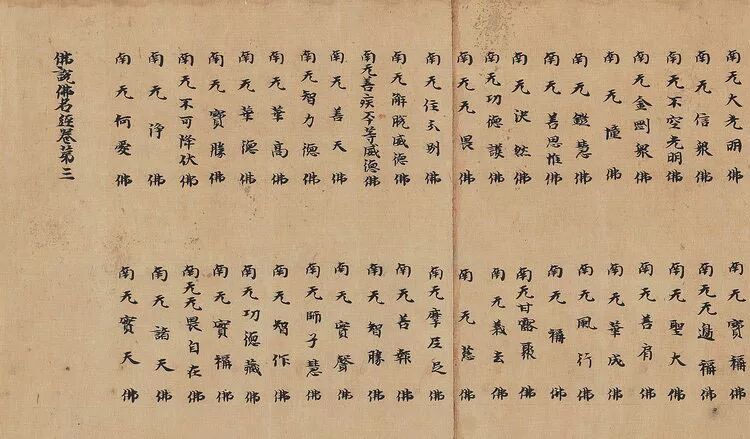 南无大光明佛 南无寶稱佛
南无信眾佛 南无无邊稱佛
南无不空光明佛 南无聖大佛
南无金剛眾佛 南无善肩佛
南无憧佛 南无華成佛
南无鎧慧佛 南无風行佛
南无善思惟佛 南无稱佛
南无決然佛 南无甘露聚佛
南无功德護佛 南无義去佛
南无无畏佛 南无慈佛
南无住分別佛 南无摩尼足佛
南无解脫威德佛 南无善報佛
南无善疾平等威德佛 南无智勝佛
南无善天佛 南无寶聲佛
南无智力德佛 南无師子慧佛
南无華高佛 南无智作佛
南无華德佛 南无功德藏佛
南无寶勝佛 南无寶稱佛
南无不可降伏佛 南无无畏自在佛
南无淨佛 南无諸天佛
南无何愛佛 南无寶天佛
佛說佛名經卷第三